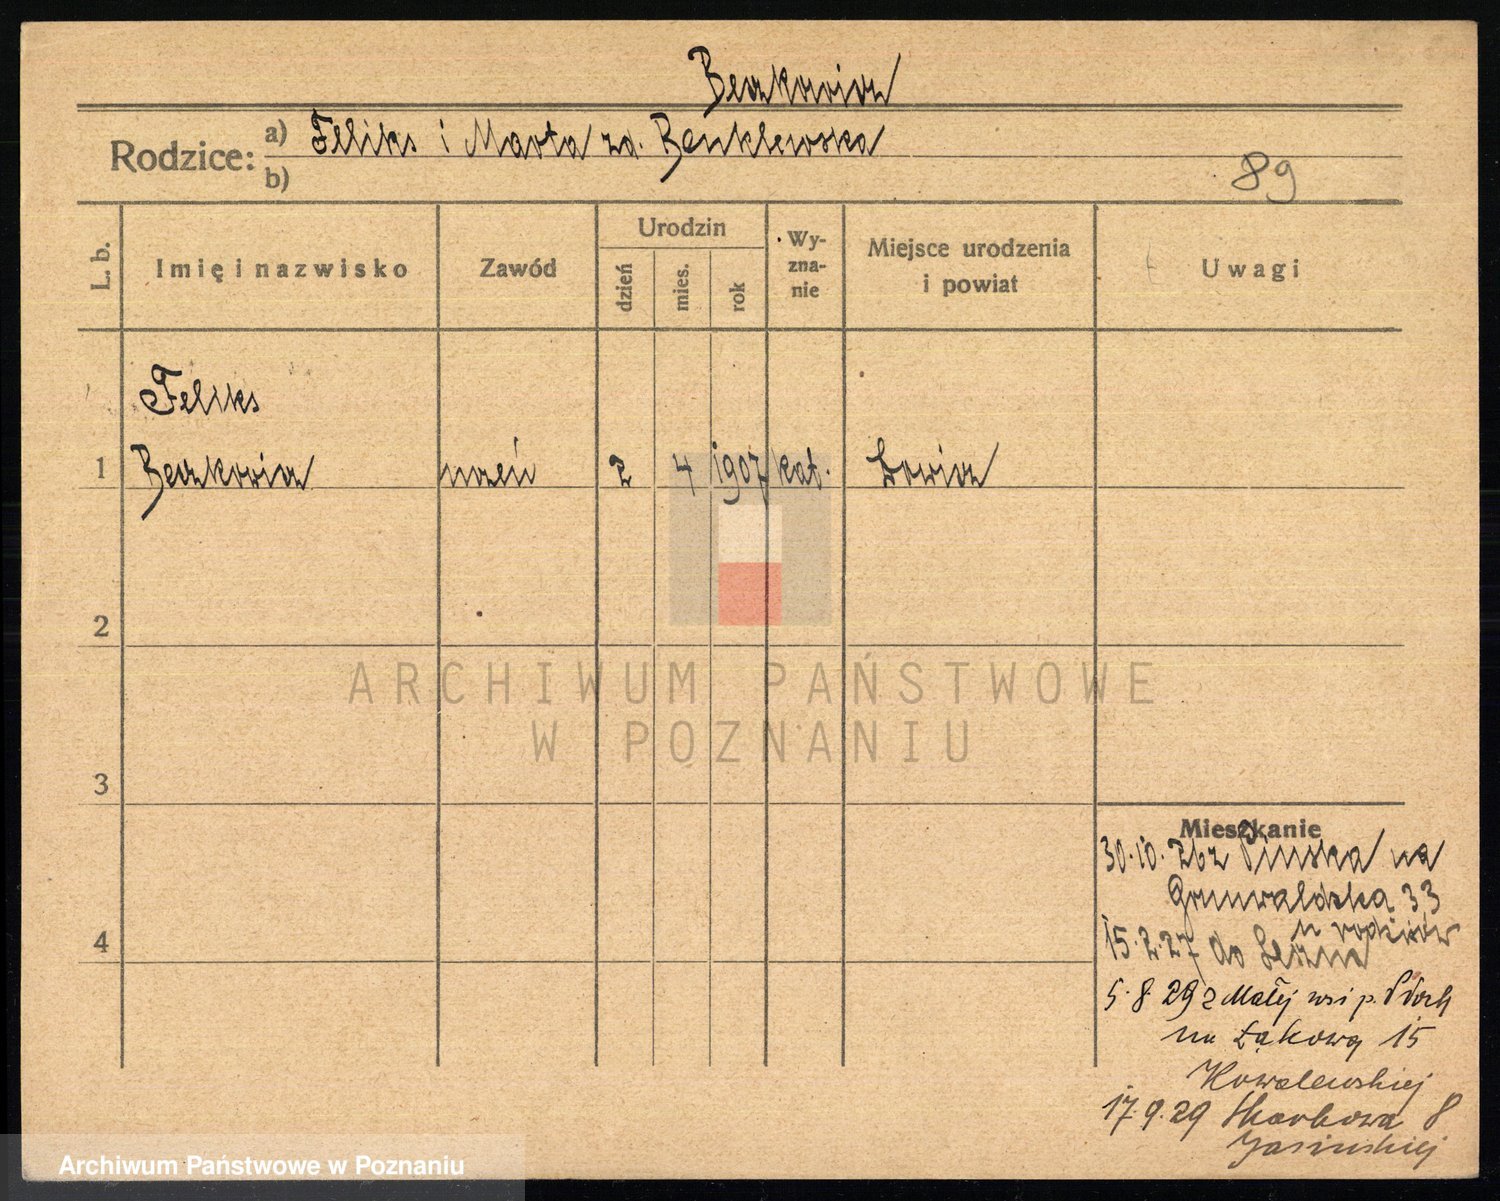 Beczkowicz
Rodzice:
a) Feliks i Marta zd. Renklewska
b)
89
L. b.
Imię i nazwisko
Zawód
Urodzin
dzień
mies.
rok
Wy-
zna-
nie
Miejsce urodzenia
i powiat
Uwagi
Feliks
1 Beczkowicz uczeń 2 4 1907 kat. Łowicz
2
ARCHIWUM PAŃSTWOWE
W POZNANIU
3
Mieszkanie
30.10. 26 z Pińska na
Grunwaldzka 33
u rodziców
15.2.27 do Leszna
4
5.8 29 z Małej wsi p. Płock
na Łąkową 15
Kowalewskiej
17.9.29 Skarbowa 8
Jasińskiej
Archiwum Państwowe w Poznaniu